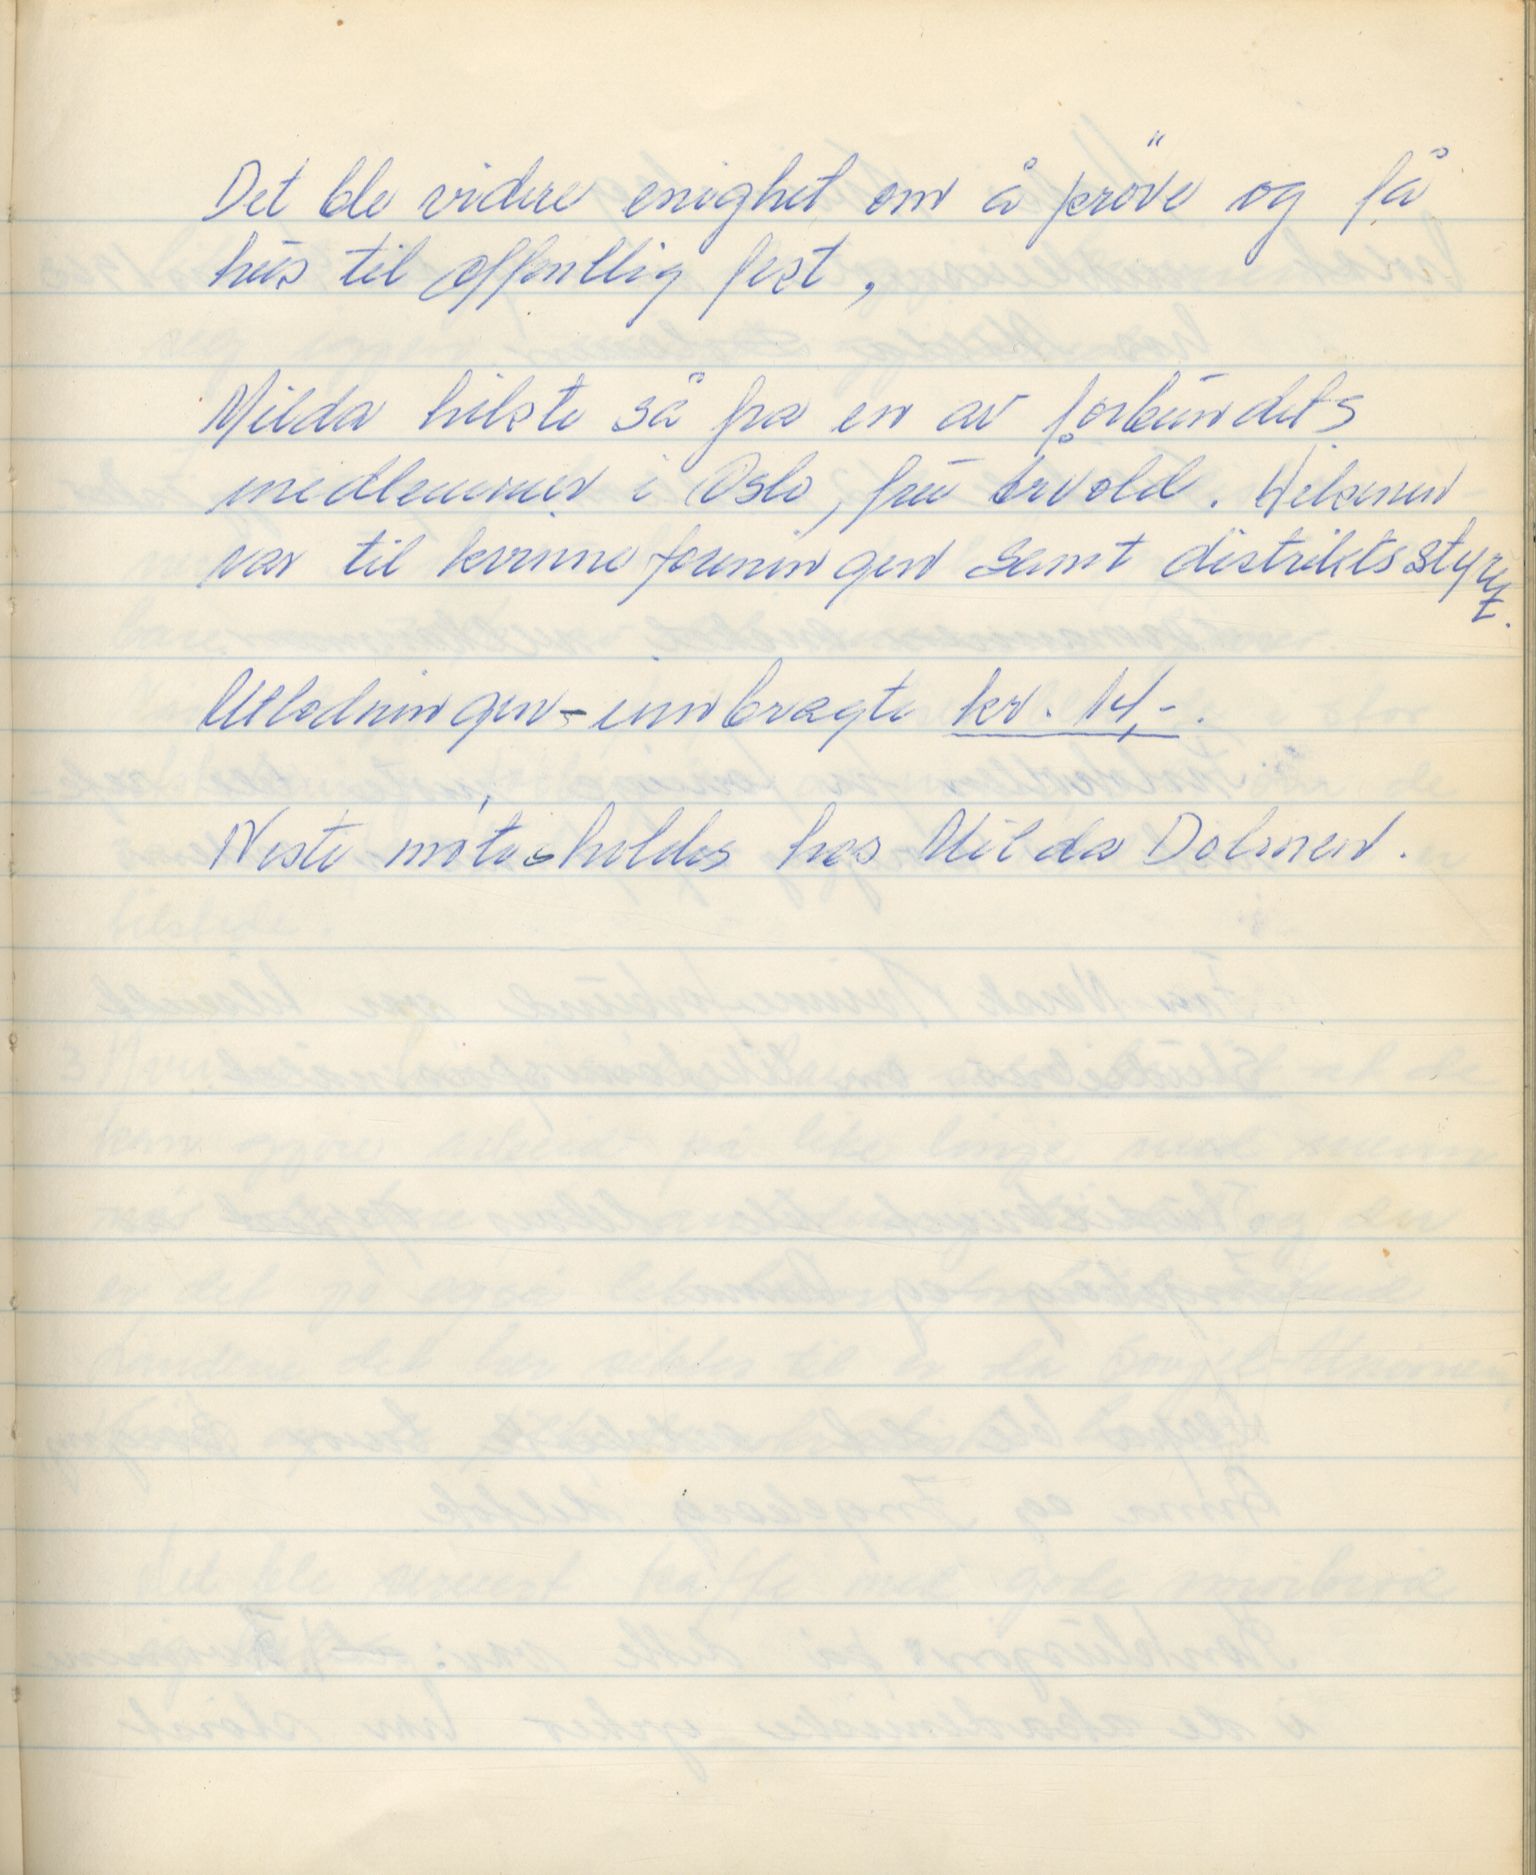 Det ble videre enighet om å pröve og få
hus til offentlig fest,
Milda hilste så fra en av forbundets
medlemmer i Oslo, fru Arvold. Hilsenen
var til kvinneforeningen samt distriktsstyret.
Utlodningen innbragte kr. 14,-.
Neste møte holdes hos Milda Dolmen.